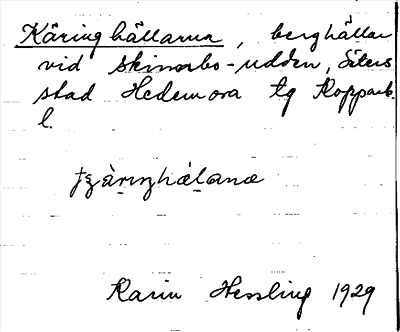 Käringhällarna, berghällar
vid Skinarbo-udden, Säters
stad Hedemora tg Kopparb.
l.
Karin Hessling 1929